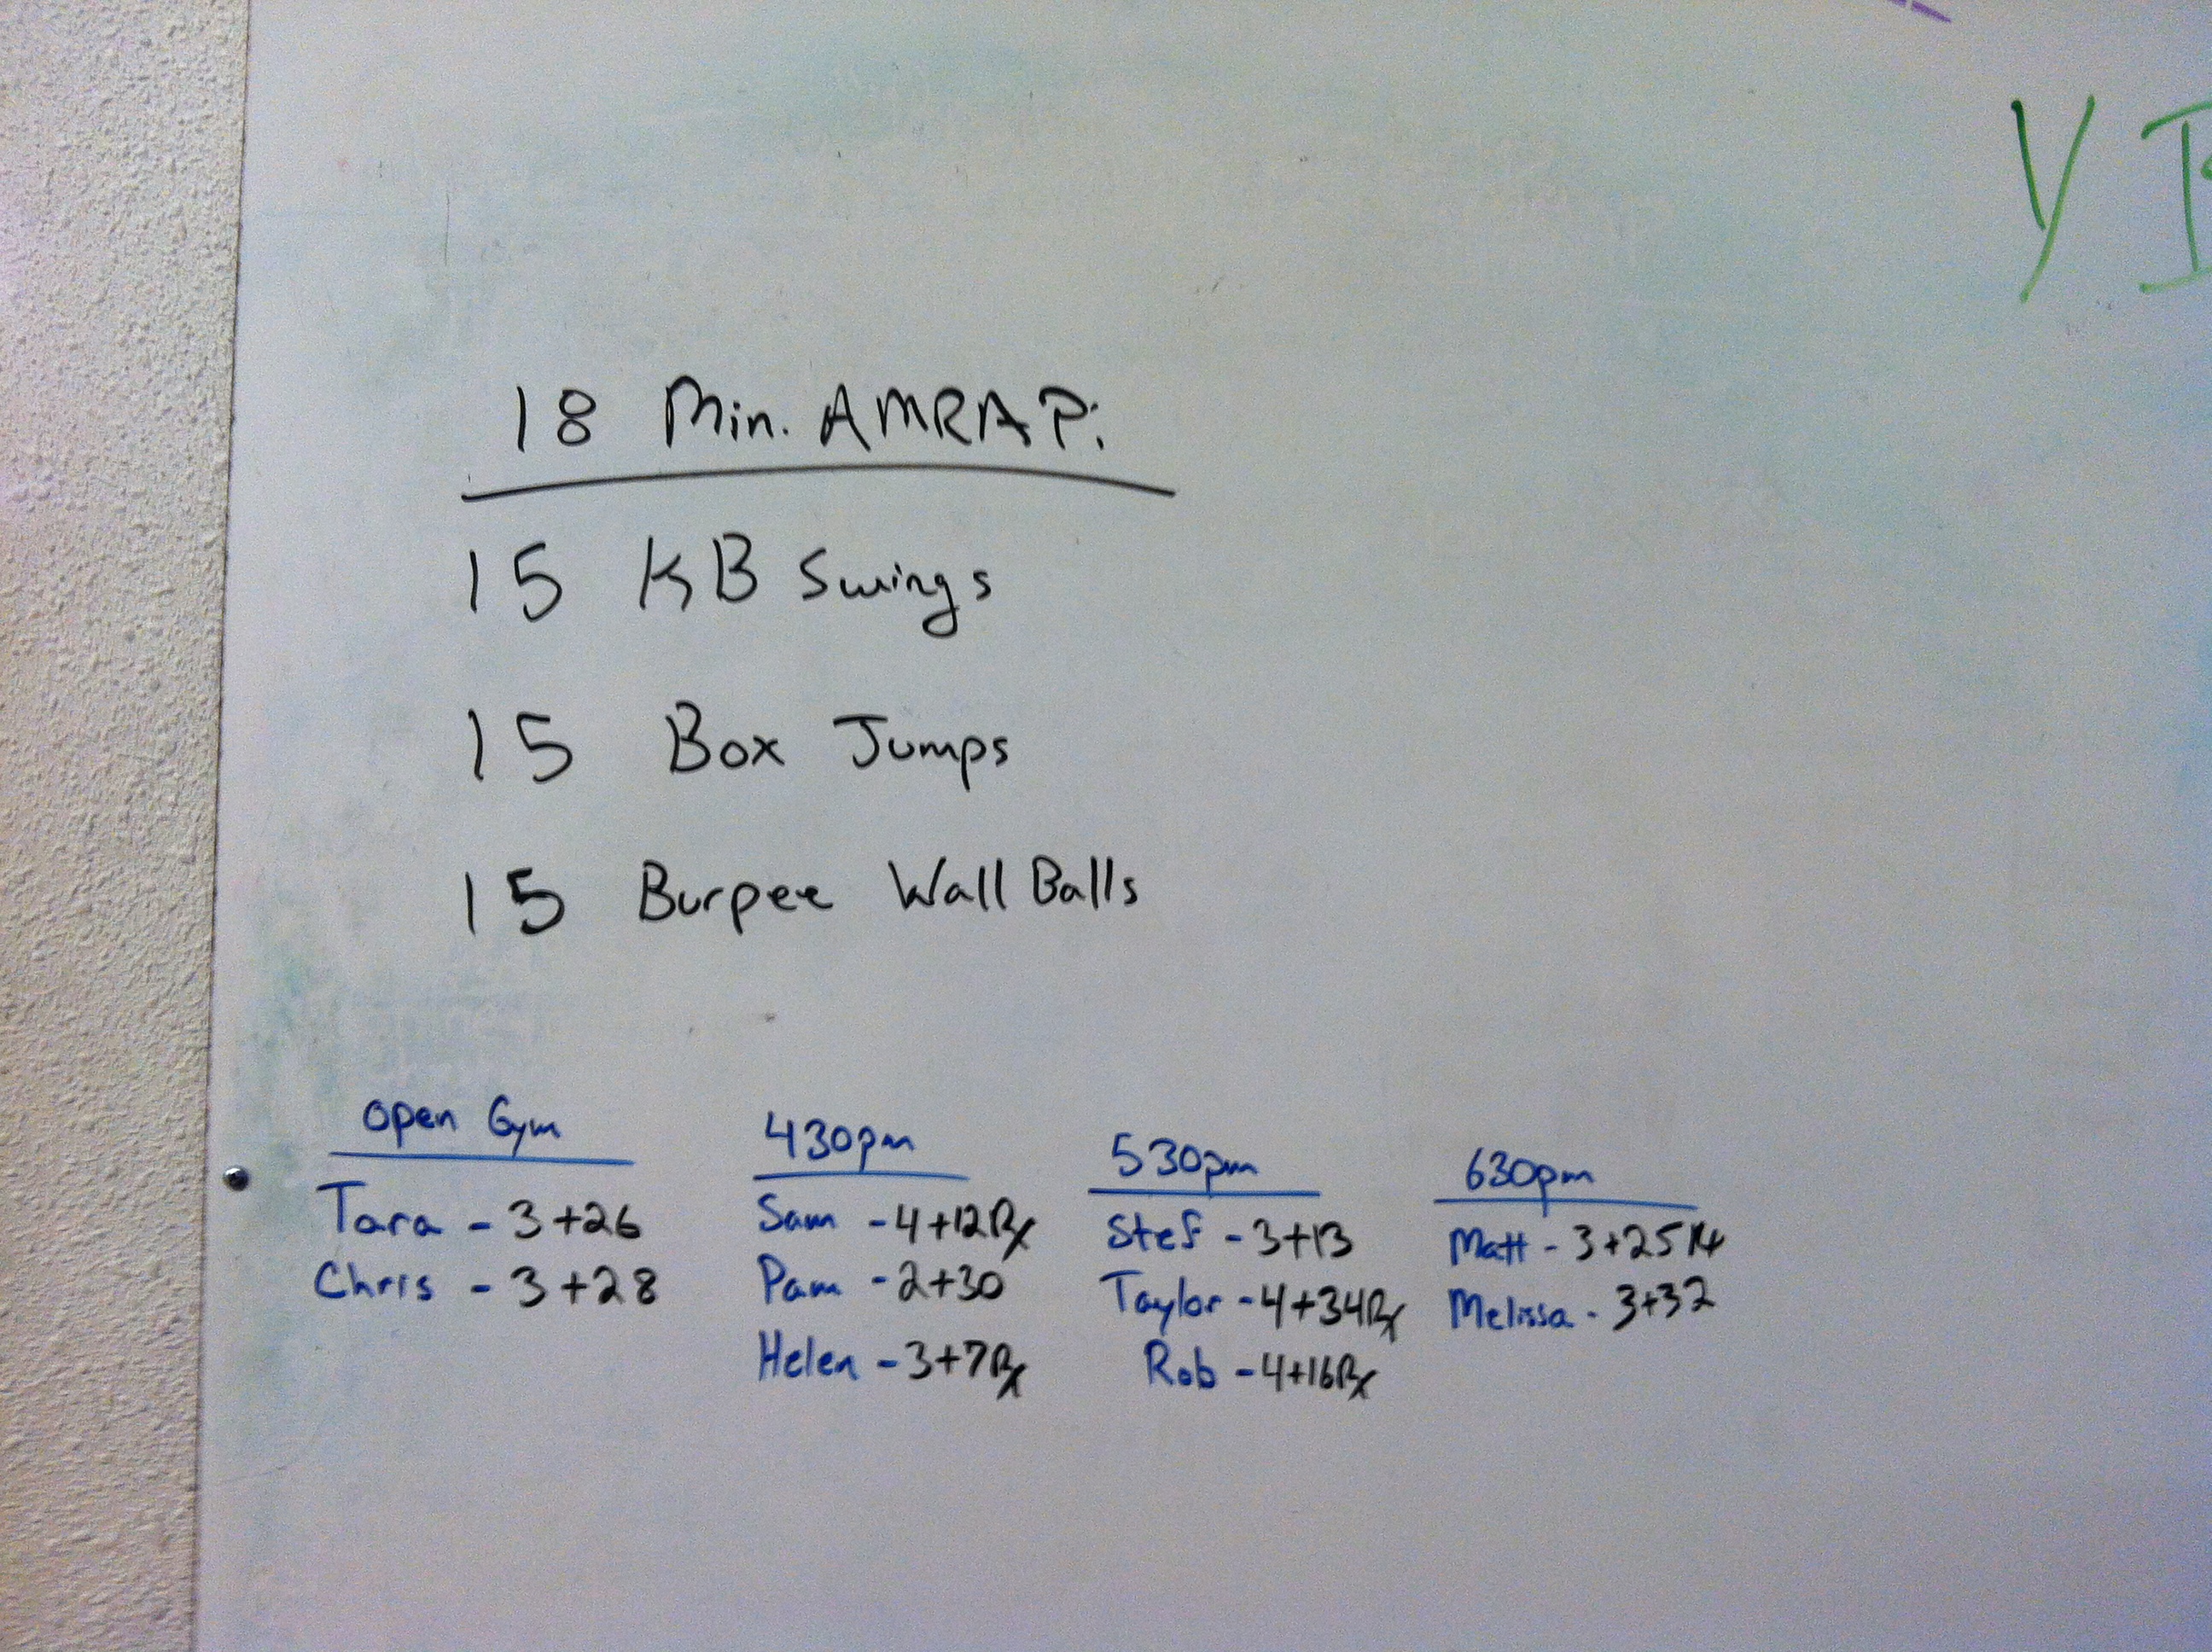 Y
18 Min. AMRAP:
15 KB Swings
15 Box Jumps
15 Burpee Wall Balls
open Gym
Tara - 3+26
Chris - 3+28
430pm
Sam - 4+12Rx
Pam - 2+30
Helen - 3+7Rx
530pm
Stef - 3+13
Taylor - 4+34Rx
Rob - 4+16Rx
630pm
Matt - 3+25
Melissa - 3+32